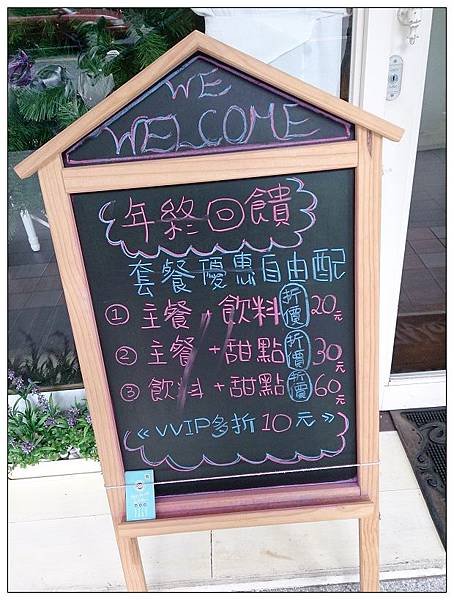 WE
WELCOME
年終回饋
套餐優惠自由配
① 主餐+飲料 折價 20元
② 主餐+甜點 折價 30元
③ 飲料+甜點 折價 60元
《VVIP多折10元》